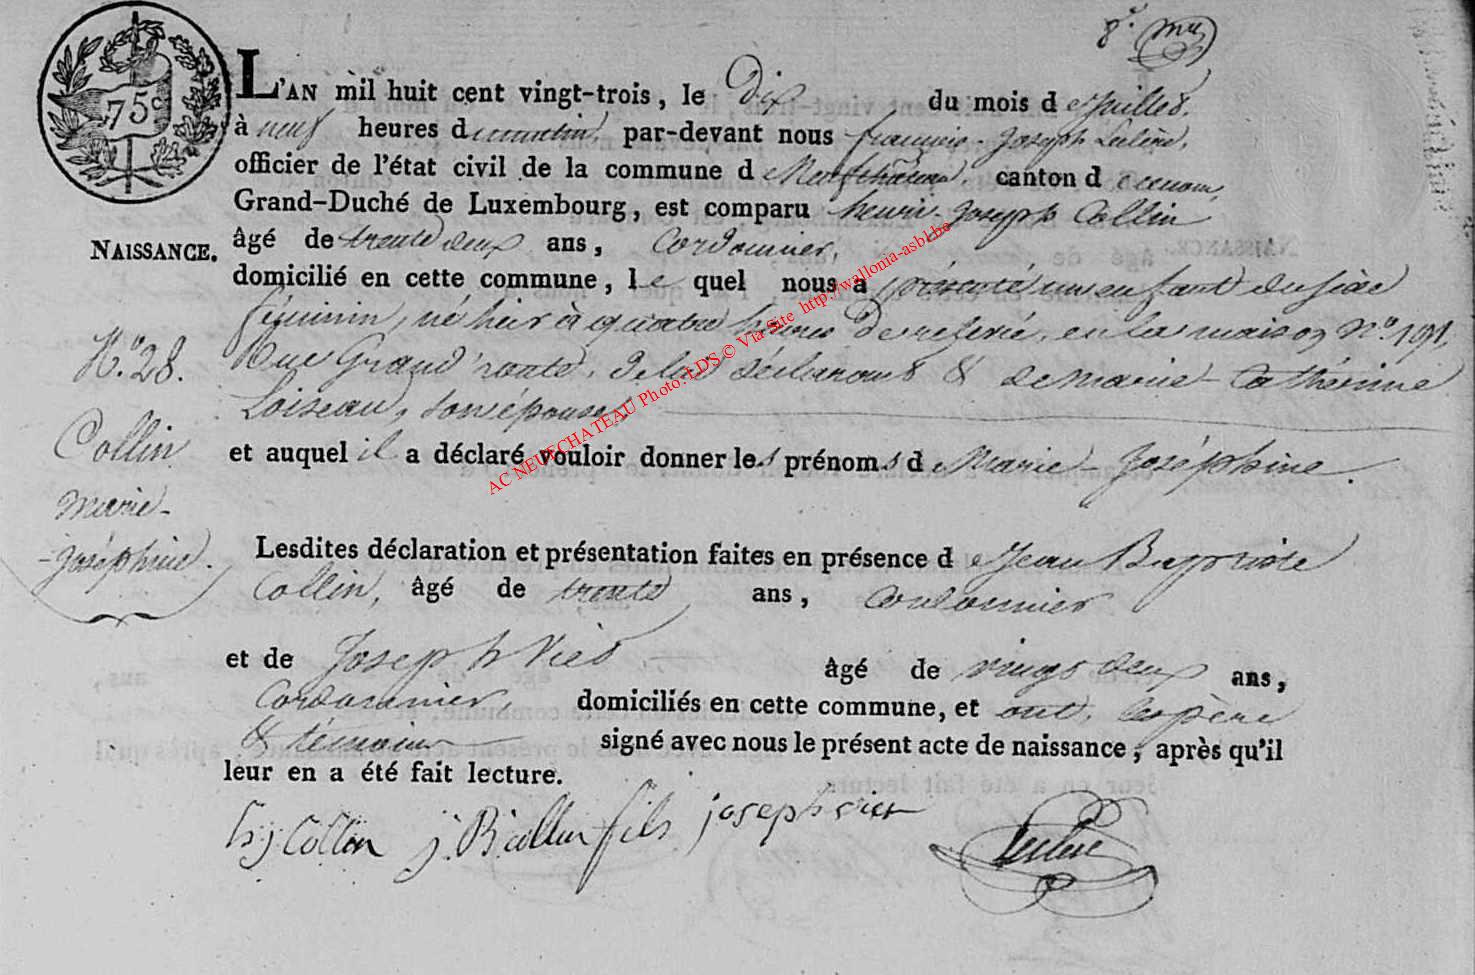 8e. mu
75c
L'AN mil huit cent vingt-trois, le Dix du mois de Juillet.
à neuf heures du matin, par-devant nous françois-Joseph Leclère,
officier de l'état civil de la commune de Neufchâteau, canton de ce nom,
Grand-Duché de Luxembourg, est comparu henri-Joseph Collin
NAISSANCE.
âgé de trente deux ans, Cordonnier,
domicilié en cette commune, lequel nous a présenté un enfant du sèxe
féminin, né hier à quatre heures de relevée, en la maison No. 191.
No. 28.
Rue Grand'route, de lui déclarant & de Marie-Cathérinne
Loiseau, son épouse,
Collin
Marie-
-Joséphine.
et auquel il a déclaré vouloir donner les prénoms de Marie-Joséphine.
Lesdites déclaration et présentation faites en présence de Jean Baptiste
Collin, âgé de trente ans, Cordonnier
et de Joseph Niès, âgé de vingt deux ans,
Cordonnier, domiciliés en cette commune, et ont, les père
& témoins signé avec nous le présent acte de naissance, après qu'il
leur en a été fait lecture.
h j Collin j. B. collin fils joseph nies
Leclère
AC NEUFCHATEAU Photo. LDS © Via Site http://wallonia-asbl.be